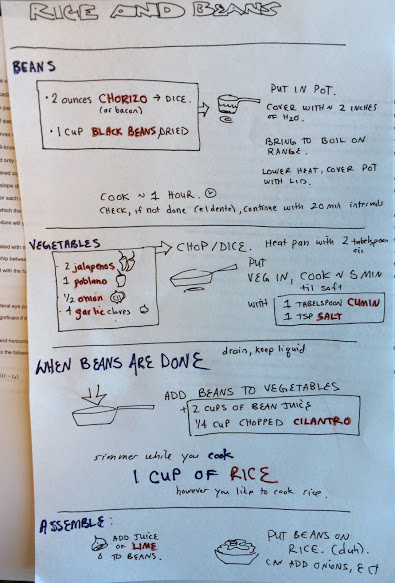 RICE AND BEANS
BEANS
· 2 ounces CHORIZO → DICE.
(or bacon)
· 1 CUP BLACK BEANS, DRIED
PUT IN POT.
COVER WITH ~ 2 INCHES
OF H2O.
BRING TO BOIL ON
RANGE.
LOWER HEAT, COVER POT
WITH LID.
COOK ~ 1 HOUR.
CHECK, if not done (el dente), continue with 20 min intervals
VEGETABLES
2 jalapenos
1 poblano
1/2 onion
4 garlic cloves
CHOP/DICE. Heat pan with 2 tabelspoon
oil
PUT
VEG IN, COOK ~ 5 MIN
til soft
WITH
1 TABELSPOON CUMIN
1 TSP SALT
WHEN BEANS ARE DONE
drain, keep liquid
ADD BEANS TO VEGETABLES
+ 2 CUPS OF BEAN JUICE
1/4 CUP CHOPPED CILANTRO
simmer while you cook
1 CUP OF RICE
however you like to cook rice.
ASSEMBLE:
ADD JUICE
OF LIME
TO BEANS.
PUT BEANS ON
RICE. (duh).
CAN ADD ONIONS, ECT